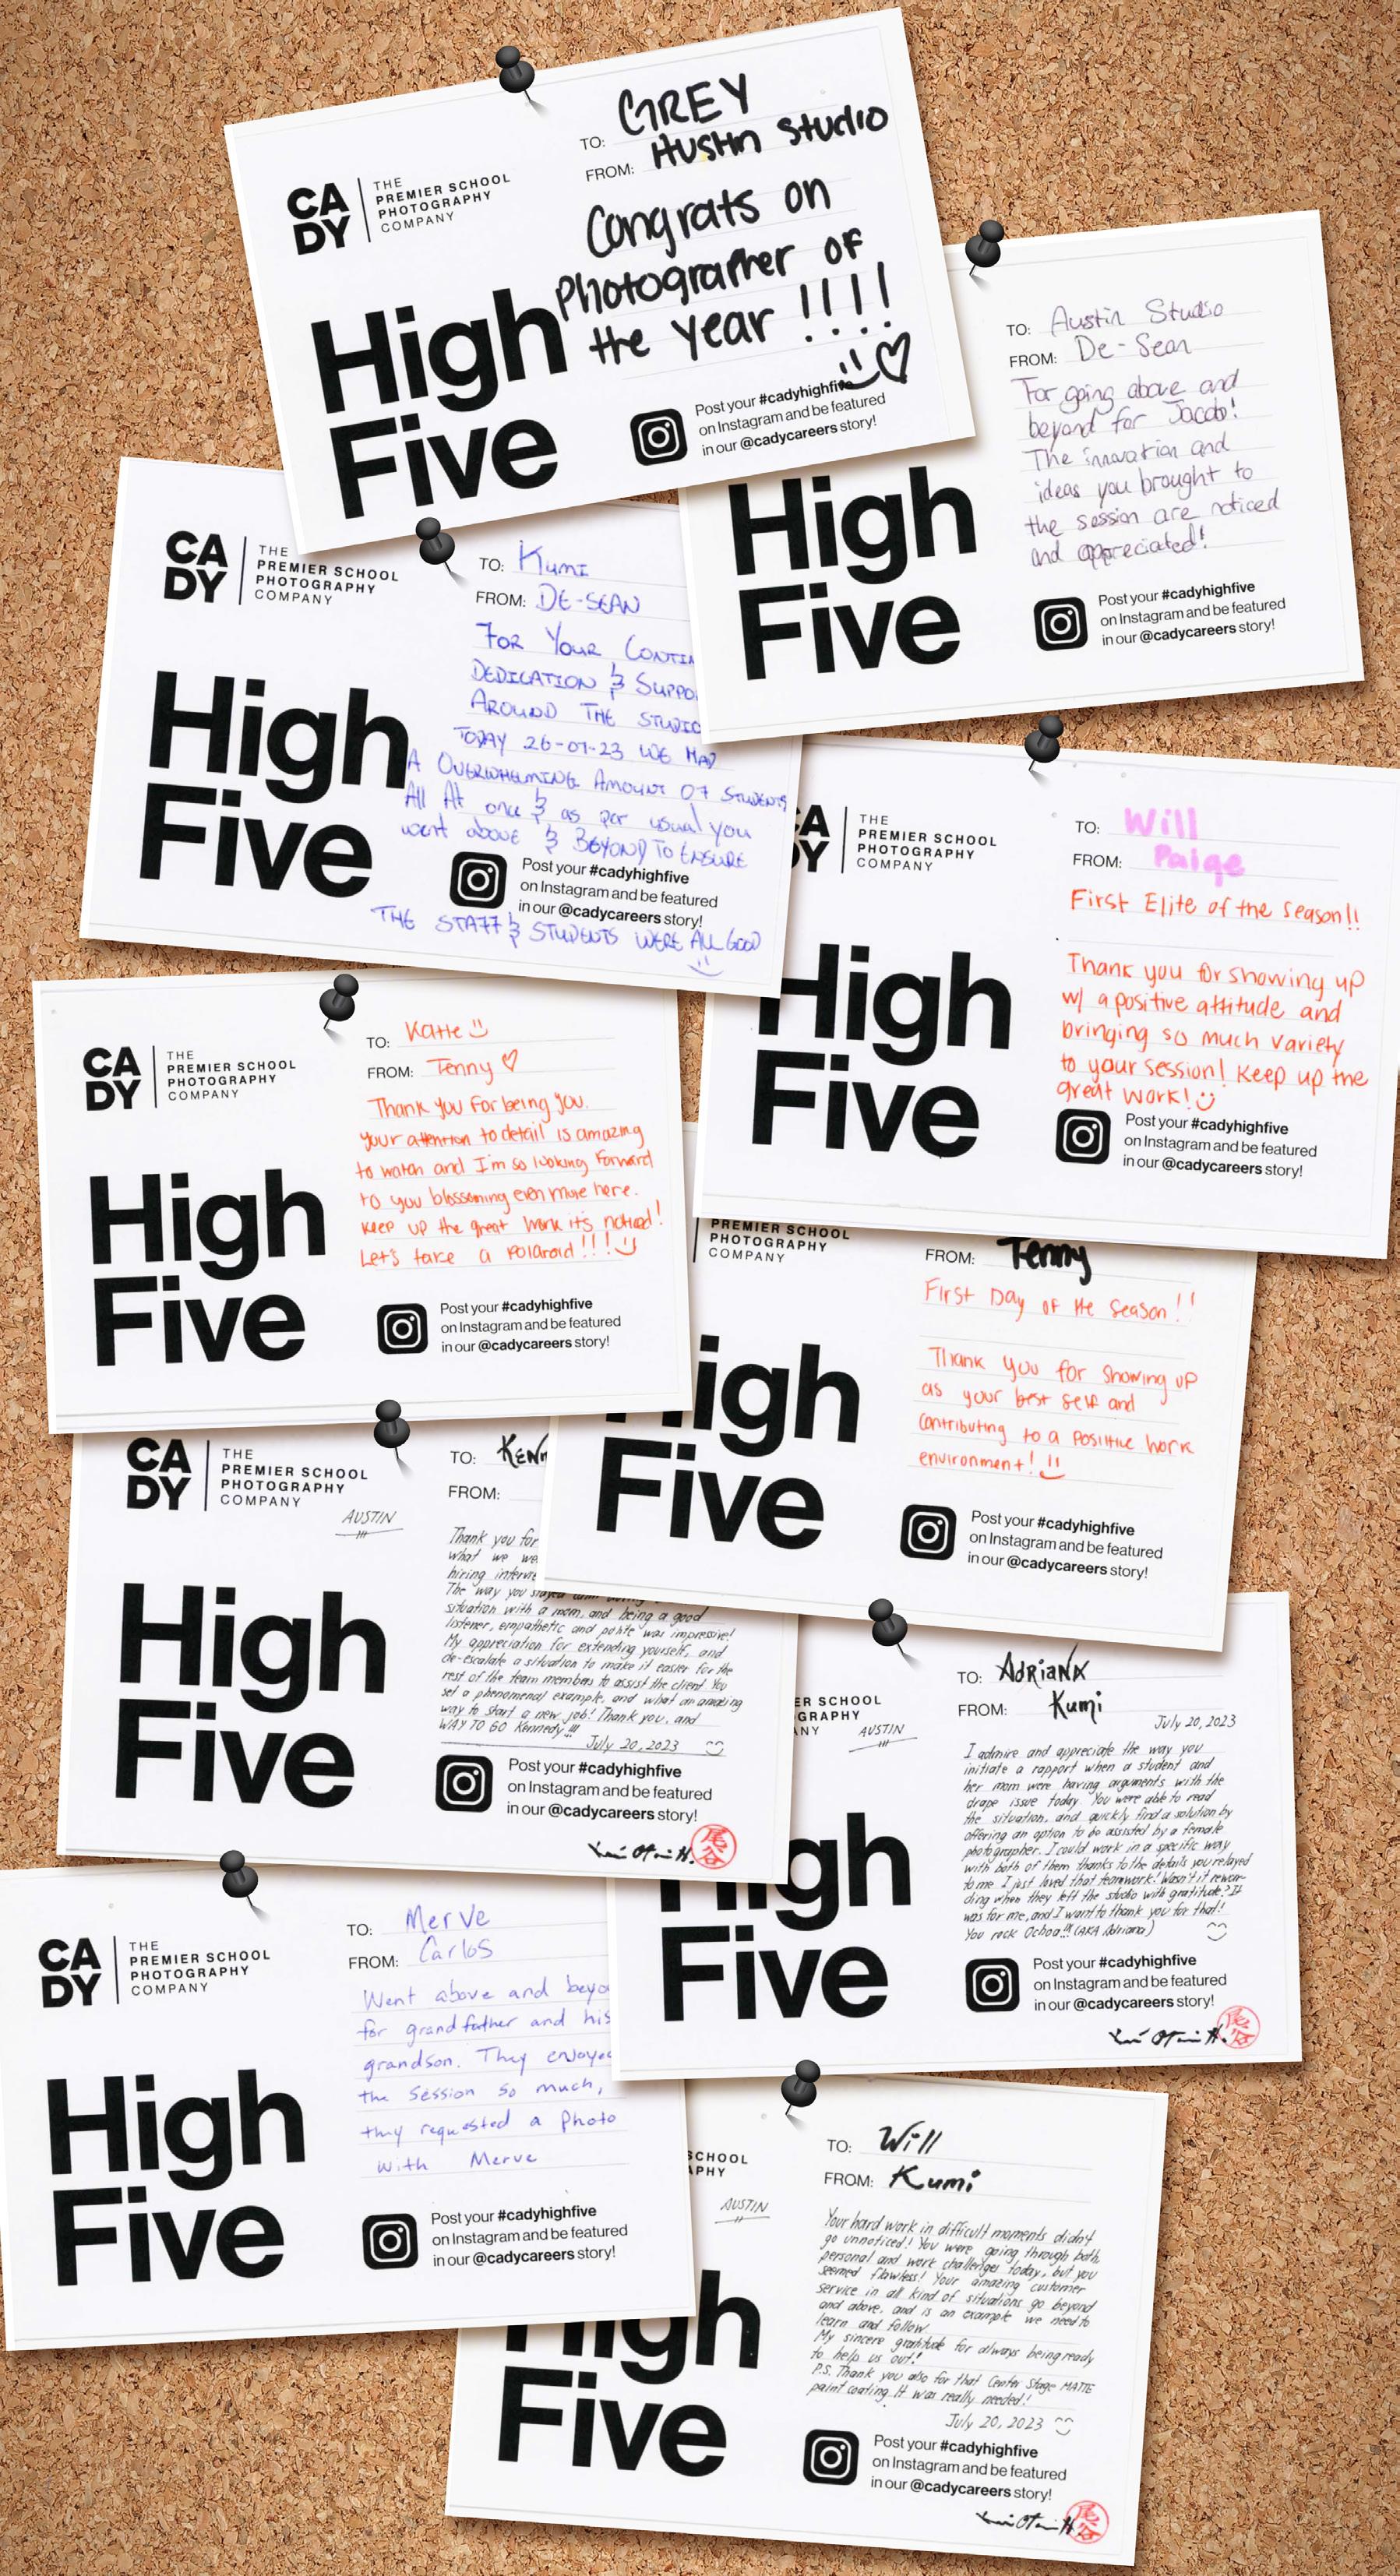 CA
DY
THE
PREMIER SCHOOL
PHOTOGRAPHY
COMPANY
TO: GREY
FROM: Austin Studio
Congrats on
Photographer of
the year !!!!
High
Five
Post your #cadyhighfive
on Instagram and be featured
in our @cadycareers story!
TO: Austin Studio
FROM: De-Sean
For going above and
beyond for Jacob!
The innovation and
ideas you brought to
the session are noticed
and appreciated!
High
Five
Post your #cadyhighfive
on Instagram and be featured
in our @cadycareers story!
CA
DY
THE
PREMIER SCHOOL
PHOTOGRAPHY
COMPANY
TO: Kumi
FROM: DE-SEAN
FOR YOUR
DEDICATION &
AROUND THE STUDIO
TODAY 26-07-23 WE HAD
A OVERWHELMING AMOUNT OF STUDENTS
All At once & as per usual you
went above & BEYOND TO ENSURE
THE STAFF & STUDENTS WERE ALL GOOD
High
Five
Post your #cadyhighfive
on Instagram and be featured
in our @cadycareers story!
THE
PREMIER SCHOOL
PHOTOGRAPHY
COMPANY
TO: Will
FROM: Paige
First Elite of the Season!!
Thank you for showing up
w/ a positive attitude and
bringing so much variety
to your session! Keep up the
great work!
High
Five
Post your #cadyhighfive
on Instagram and be featured
in our @cadycareers story!
CA
DY
THE
PREMIER SCHOOL
PHOTOGRAPHY
COMPANY
TO: Katie
FROM: Tenny
Thank you for being you.
your attention to detail is amazing
to watch and I'm so looking forward
to you blossoming even more here.
keep up the great work it's noticed!
Let's take a Polaroid!!!
High
Five
Post your #cadyhighfive
on Instagram and be featured
in our @cadycareers story!
PREMIER SCHOOL
PHOTOGRAPHY
COMPANY
FROM: Tenny
First Day of the Season!!
Thank you for showing up
as your best self and
contributing to a positive work
environment!
High
Five
Post your #cadyhighfive
on Instagram and be featured
in our @cadycareers story!
CA
DY
THE
PREMIER SCHOOL
PHOTOGRAPHY
COMPANY
AUSTIN
TO:
FROM:
Thank you for
what we
hiring
The way you stayed calm
situation with a mom, and being a good
listener, empathetic and polite was impressive!
My appreciation for extending yourself, and
de-escalate a situation to make it easier for the
rest of the team members to assist the client. You
set a phenomenal example, and what an amazing
way to start a new job! Thank you, and
WAY TO GO Kennedy!!!
July 20, 2023
High
Five
Post your #cadyhighfive
on Instagram and be featured
in our @cadycareers story!
尾谷
SCHOOL
AUSTIN
TO: ADRIANA
FROM: Kumi
July 20, 2023
I admire and appreciate the way you
initiate a rapport when a student and
her mom were having arguments with the
drape issue today. You were able to read
the situation, and quickly find a solution by
offering an option to be assisted by a female
photographer. I could work in a specific way
with both of them thanks to the details you relayed
to me. I just loved that teamwork! Wasn't it rewar-
ding when they left the studio with gratitude? It
was for me, and I want to thank you for that!
You rock Ochoa!!! (AKA Adriana)
High
Five
Post your #cadyhighfive
on Instagram and be featured
in our @cadycareers story!
尾谷
CA
DY
THE
PREMIER SCHOOL
PHOTOGRAPHY
COMPANY
TO: Merve
FROM: Carlos
Went above and
for grandfather and his
grandson. They
the session so much,
they requested a photo
with Merve
High
Five
Post your #cadyhighfive
on Instagram and be featured
in our @cadycareers story!
SCHOOL
AUSTIN
TO: Will
FROM: Kumi
Your hard work in difficult moments didn't
go unnoticed! You were going through both
personal and work challenges today, but you
seemed flawless! Your amazing customer
service in all kind of situations go beyond
and above, and is an example we need to
learn and follow.
My sincere gratitude for always being ready
to help us out!
P.S. Thank you also for that Center Stage MATTE
paint coating. It was really needed!
July 20, 2023
High
Five
Post your #cadyhighfive
on Instagram and be featured
in our @cadycareers story!
尾谷